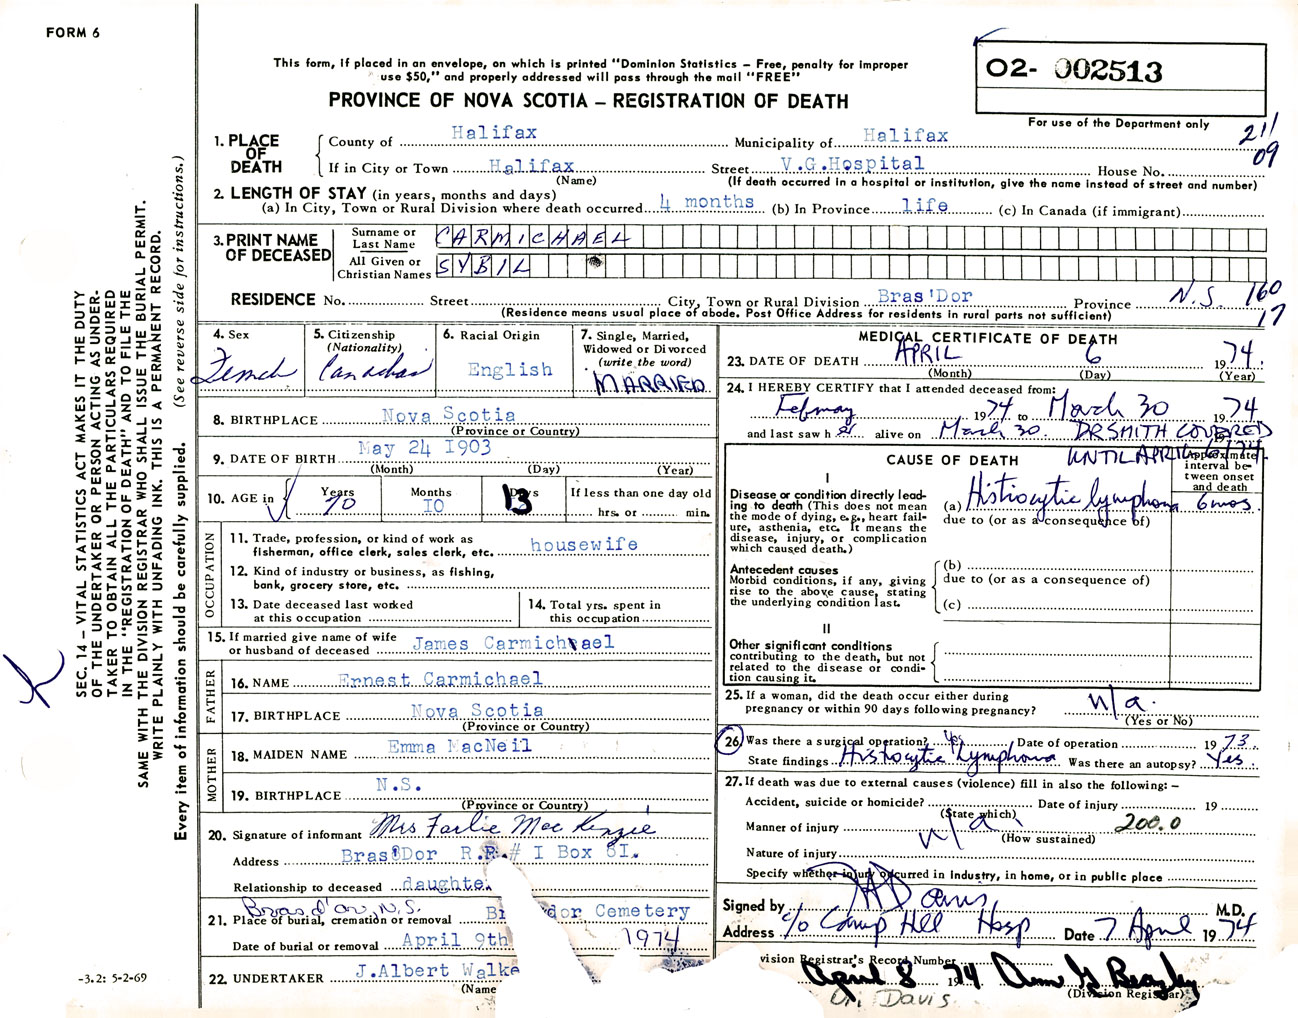 FORM 6
This form, if placed in an envelope, on which is printed "Dominion Statistics – Free, penalty for improper
use $50," and properly addressed will pass through the mail "FREE"
PROVINCE OF NOVA SCOTIA – REGISTRATION OF DEATH
02- 002513
For use of the Department only
211
09
1. PLACE OF DEATH
County of Halifax Municipality of Halifax
If in City or Town Halifax Street V.G.Hospital House No.
(Name) (If death occurred in a hospital or institution, give the name instead of street and number)
2. LENGTH OF STAY (in years, months and days)
(a) In City, Town or Rural Division where death occurred 4 months (b) In Province life (c) In Canada (if immigrant)
3. PRINT NAME OF DECEASED
Surname or Last Name CARMICHAEL
All Given or Christian Names SYBIL
RESIDENCE No. Street City, Town or Rural Division Bras'Dor Province N.S. 160
(Residence means usual place of abode. Post Office Address for residents in rural parts not sufficient) 17
SEC. 14 – VITAL STATISTICS ACT MAKES IT THE DUTY
OF THE UNDERTAKER OR PERSON ACTING AS UNDER-
TAKER TO OBTAIN ALL THE PARTICULARS REQUIRED
IN THE "REGISTRATION OF DEATH" AND TO FILE THE
SAME WITH THE DIVISION REGISTRAR WHO SHALL ISSUE THE BURIAL PERMIT.
WRITE PLAINLY WITH UNFADING INK. THIS IS A PERMANENT RECORD.
Every item of information should be carefully supplied. (See reverse side for instructions.)
4. Sex
5. Citizenship
(Nationality)
Canadian
6. Racial Origin
English
7. Single, Married,
Widowed or Divorced
(write the word)
MARRIED
8. BIRTHPLACE Nova Scotia
(Province or Country)
9. DATE OF BIRTH May 24 1903
(Month) (Day) (Year)
10. AGE in Years Months Days If less than one day old
70 10 13 hrs. or min.
OCCUPATION
11. Trade, profession, or kind of work as
fisherman, office clerk, sales clerk, etc. housewife
12. Kind of industry or business, as fishing,
bank, grocery store, etc.
13. Date deceased last worked
at this occupation
14. Total yrs. spent in
this occupation
15. If married give name of wife
or husband of deceased James Carmichael
FATHER
16. NAME Ernest Carmichael
17. BIRTHPLACE Nova Scotia
(Province or Country)
MOTHER
18. MAIDEN NAME Emma MacNeil
19. BIRTHPLACE N.S.
(Province or Country)
20. Signature of informant Mrs Farlie MacKenzie
Address Bras'Dor R.R.# I Box 8I.
Relationship to deceased daughte
Bras d'or, N.S.
21. Place of burial, cremation or removal B dor Cemetery
Date of burial or removal April 9th 1974
22. UNDERTAKER J.Albert Walke
(Name
–3.2: 5-2-69
MEDICAL CERTIFICATE OF DEATH
23. DATE OF DEATH APRIL 6 1974
(Month) (Day) (Year)
24. I HEREBY CERTIFY that I attended deceased from:
1974 to March 30 1974
and last saw her alive on March 30. DR SMITH COVERED
UNTIL APRIL
CAUSE OF DEATH
Approximate
interval be-
tween onset
and death
I
Disease or condition directly lead-
ing to death (This does not mean
the mode of dying, e.g., heart fail-
ure, asthenia, etc. It means the
disease, injury, or complication
which caused death.)
(a) Histiocytic lymphoma 6 mos.
due to (or as a consequence of)
Antecedent causes
Morbid conditions, if any, giving
rise to the above cause, stating
the underlying condition last.
(b)
due to (or as a consequence of)
(c)
II
Other significant conditions
contributing to the death, but not
related to the disease or condi-
tion causing it.
25. If a woman, did the death occur either during
pregnancy or within 90 days following pregnancy? n/a.
(Yes or No)
26. Was there a surgical operation? yes Date of operation 1973.
State findings Histiocytic Lymphoma Was there an autopsy? Yes.
27. If death was due to external causes (violence) fill in also the following: –
Accident, suicide or homicide? Date of injury 19
(State which)
Manner of injury n/a 200.0
(How sustained)
Nature of injury
Specify whether injury occurred in industry, in home, or in public place
Signed by Davis M.D.
Address c/o Camp Hill Hosp Date 7 April 1974
vision Registrar's Record Number
April 8 1974
(Division Registrar)
Dr. Davis